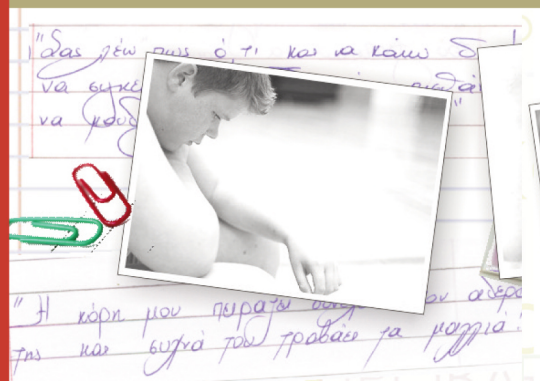 "Σας λέω πως ό,τι και να κάνω δ
να συγκε
να κουβ
"Η κόρη μου πειράζει συχν τον αδερφ
της και συχνά του τραβάει τα μαλλιά!